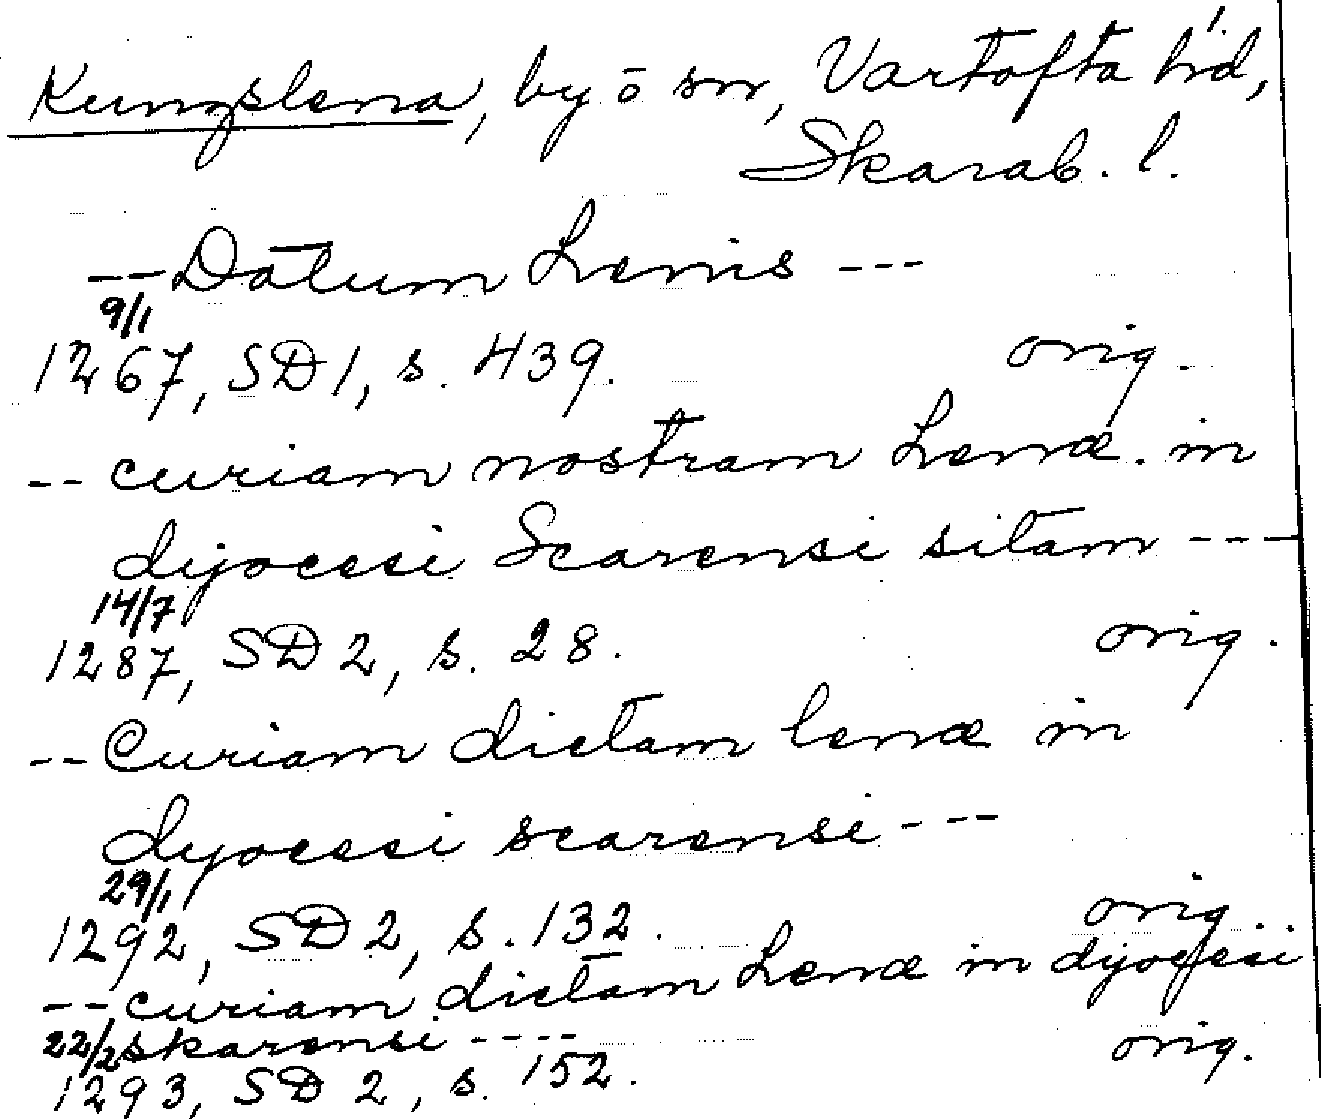 Kungslena, by o sn, Vartofta hd,
Skarab. l.
-- Datum Lenis ---
9/1
1267, SD 1, s. 439. orig.
-- curiam nostram Lenæ in
dyocesi Scarensi sitam ---
14/7
1287, SD 2, s. 28. orig.
-- Curiam dictam lenæ in
dyocesi scarensi ---
29/1
1292, SD 2, s. 132. orig.
-- curiam dictam Lenæ in dyocesi
22/2 skarensi ---- orig.
1293, SD 2, s. 152.